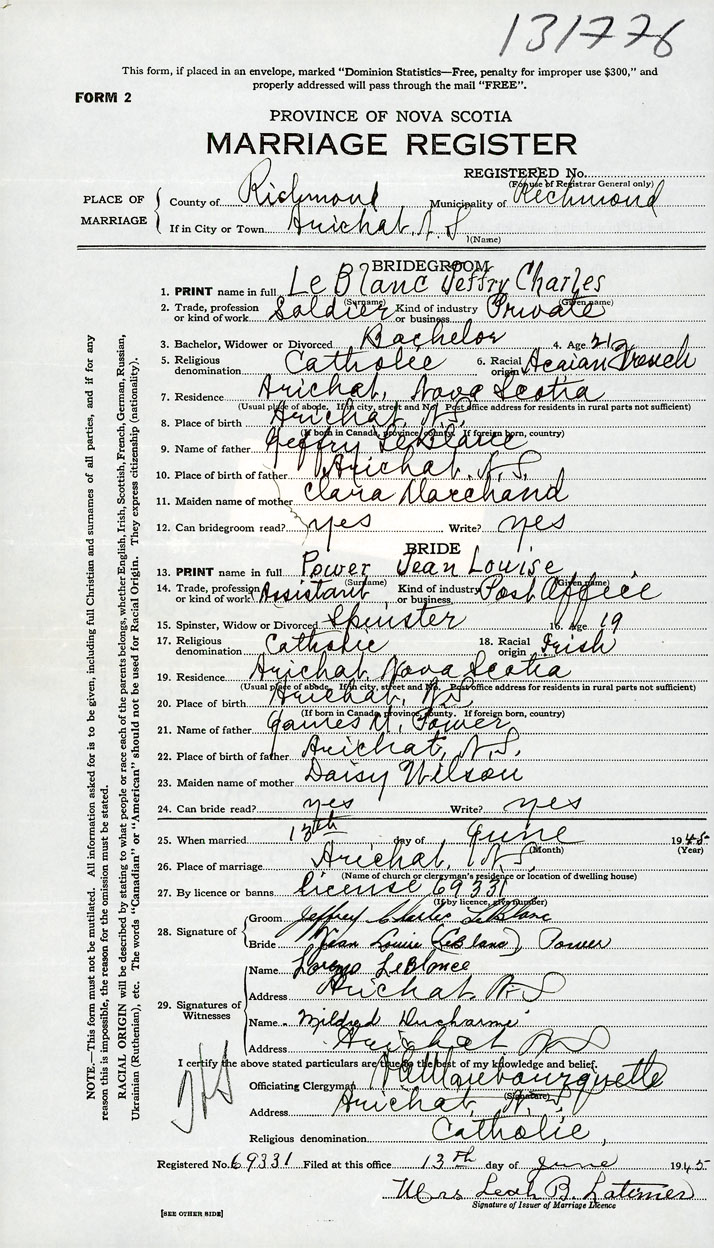 131776
This form, if placed in an envelope, marked "Dominion Statistics—Free, penalty for improper use $300," and
properly addressed will pass through the mail "FREE".
FORM 2
PROVINCE OF NOVA SCOTIA
MARRIAGE REGISTER
REGISTERED No.
(For use of Registrar General only)
PLACE OF MARRIAGE
County of Richmond Municipality of Richmond
If in City or Town Arichat, N.S.
(Name)
BRIDEGROOM
1. PRINT name in full LeBlanc Jeffry Charles
(Surname) (Given name)
2. Trade, profession or kind of work Soldier Kind of industry or business Private
3. Bachelor, Widower or Divorced Bachelor 4. Age 21
5. Religious denomination Catholic 6. Racial origin Acaian French
7. Residence Arichat, Nova Scotia
(Usual place of abode. If in city, street and No. Post office address for residents in rural parts not sufficient)
8. Place of birth Arichat, N.S.
(If born in Canada, province, county. If foreign born, country)
9. Name of father Jeffry LeBlanc
10. Place of birth of father Arichat, N.S.
11. Maiden name of mother Clara Marchand
12. Can bridegroom read? yes Write? yes
BRIDE
13. PRINT name in full Power Jean Louise
(Surname) (Given name)
14. Trade, profession or kind of work Assistant Kind of industry or business Post Office
15. Spinster, Widow or Divorced Spinster 16. Age 19
17. Religious denomination Catholic 18. Racial origin Irish
19. Residence Arichat, Nova Scotia
(Usual place of abode. If in city, street and No. Post office address for residents in rural parts not sufficient)
20. Place of birth Arichat, N.S.
(If born in Canada, province, county. If foreign born, country)
21. Name of father James Power
22. Place of birth of father Arichat, N.S.
23. Maiden name of mother Daisy Wilson
24. Can bride read? yes Write? yes
25. When married 13th day of June 1945
(Month) (Year)
26. Place of marriage Arichat, N.S.
(Name of church or clergyman's residence or location of dwelling house)
27. By licence or banns license 69331
(If by licence, give number)
28. Signature of
Groom Jeffrey Charles LeBlanc
Bride Jean Louise (LeBlanc) Power
29. Signatures of Witnesses
Name LeBlance
Address Arichat N.S
Name Mildred Ducharme
Address Arichat N.S
I certify the above stated particulars are true to the best of my knowledge and belief.
Officiating Clergyman
(Signature)
Address Arichat, N.S,
Religious denomination Catholic,
Registered No. 69331 Filed at this office 13th day of June 1945
Mrs Leah B. Latimer
Signature of Issuer of Marriage Licence
[SEE OTHER SIDE]
NOTE.—This form must not be mutilated. All information asked for is to be given, including full Christian and surnames of all parties, and if for any
reason this is impossible, the reason for the omission must be stated.
RACIAL ORIGIN will be described by stating to what people or race each of the parents belongs, whether English, Irish, Scottish, French, German, Russian,
Ukrainian (Ruthenian), etc. The words "Canadian" or "American" should not be used for Racial Origin. They express citizenship (nationality).